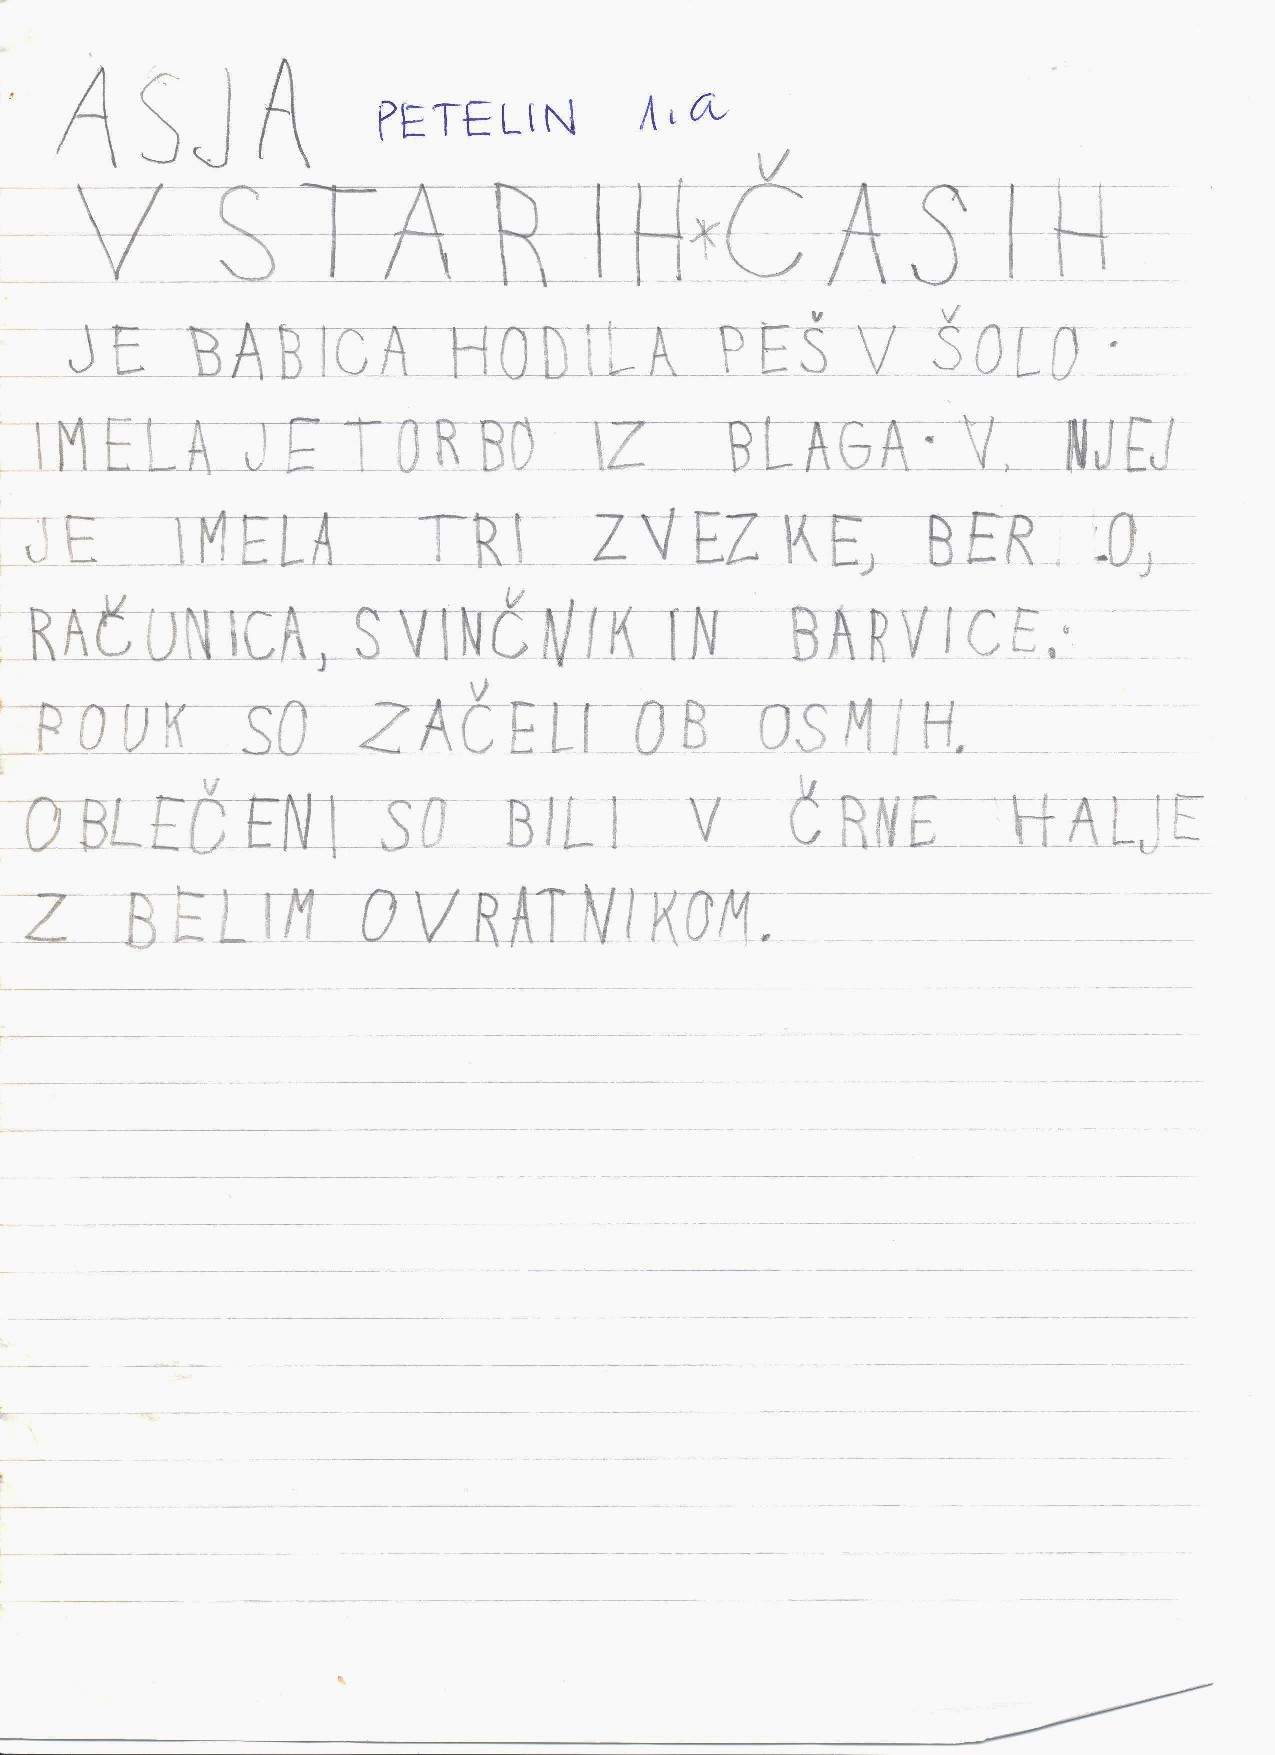 ASJA PETELIN 1.a
V STARIH*ČASIH
JE BABICA HODILA PEŠ V ŠOLO.
IMELA JE TORBO IZ BLAGA. V. NJEJ
JE IMELA TRI ZVEZKE,
RAČUNICA, SVINČNIK IN BARVICE.
POUK SO ZAČELI OB OSMIH.
OBLEČENI SO BILI V ČRNE HALJE
Z BELIM OVRATNIKOM.